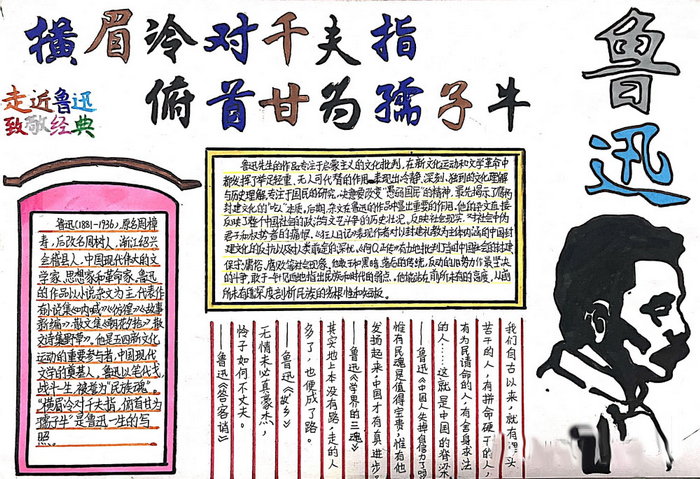 横眉冷对千夫指
俯首甘为孺子牛
鲁迅
走近鲁迅
致敬经典
鲁迅(1881-1936),原名周樟
寿,后改名周树人,浙江绍兴
会稽县人。中国现代伟大的文
学家、思想家和革命家。鲁迅
的作品以小说杂文为主,代表作
有小说集《呐喊》《彷徨》《故事
新编》,散文集《朝花夕拾》,散
文诗集《野草》。他是五四新文化
运动的重要参与者,中国现代
文学的奠基人。鲁迅以笔代戈,
战斗一生,被誉为"民族魂"。
"横眉冷对千夫指,俯首甘为
孺子牛"是鲁迅一生的写
照。
鲁迅先生的作品专注于启蒙主义的文化批判,在新文化运动和文学革命中
都发挥了举足轻重、无人可代替的作用。表现出冷静、深刻、独到的文化理解
与历史理解,专注于国民的研究,决意要改变"愚弱国民"的精神。
封建文化的"吃人"本质。后期,杂文在鲁迅的作品中显出重要的作用。他的杂文直接
反映了整个中国社会的政治与文艺斗争的历史状况,反映社会现实,对社会中伪
君子和奴势者的痛恨。《狂人日记》表现作者对以封建礼教为主体内涵的中国封
建文化的反抗以及中人类前途的深忧。《阿Q正传》有力地批判了当时中国社会的封建、
保守、庸俗、腐败等社会现象。
我们自古以来,就有埋头
苦干的人,有拼命硬干的人,
有为民请命的人,有舍身求法
的人……这就是中国的脊梁。
——鲁迅《中国人失掉自信力了吗》
惟有民魂是值得宝贵,惟有他
发扬起来,中国才有真进步。
——鲁迅《学界的三魂》
其实地上本没有路,走的人
多了,也便成了路。
——鲁迅《故乡》
无情未必真豪杰,
怜子如何不丈夫。
——鲁迅《答客诮》